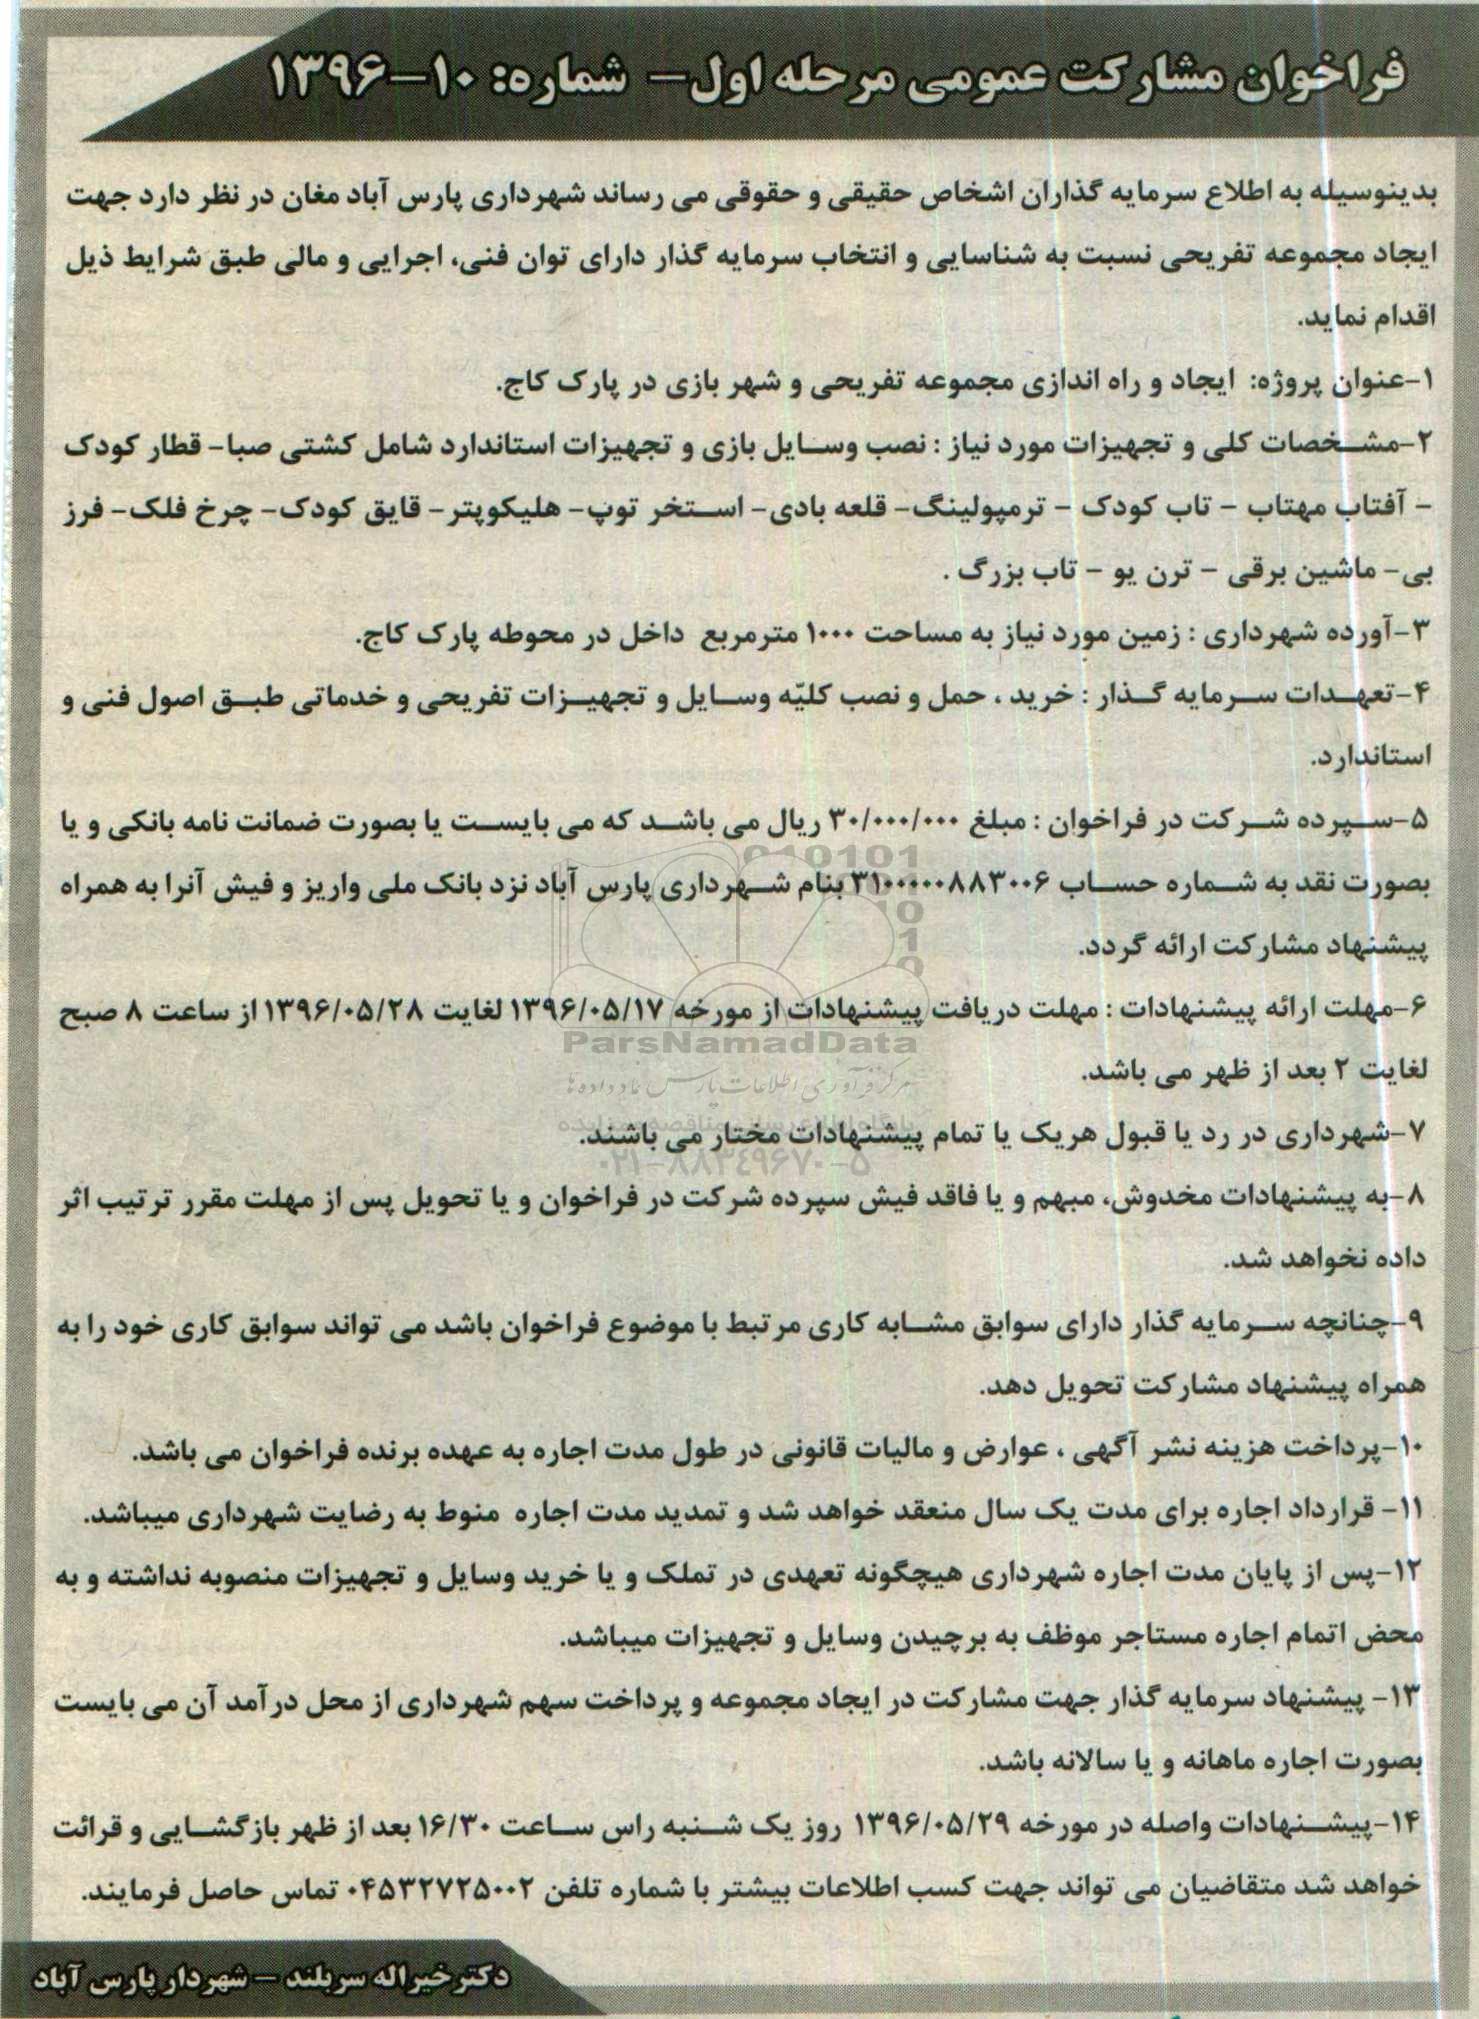 فراخوان مشارکت عمومی مرحله اول- شماره: ۱۰-۱۳۹۶
بدینوسیله به اطلاع سرمایه گذاران اشخاص حقیقی و حقوقی می رساند شهرداری پارس آباد مغان در نظر دارد جهت
ایجاد مجموعه تفریحی نسبت به شناسایی و انتخاب سرمایه گذار دارای توان فنی، اجرایی و مالی طبق شرایط ذیل
اقدام نماید.
۱-عنوان پروژه: ایجاد و راه اندازی مجموعه تفریحی و شهر بازی در پارک کاج.
۲-مشخصات کلی و تجهیزات مورد نیاز : نصب وسایل بازی و تجهیزات استاندارد شامل کشتی صبا- قطار کودک
- آفتاب مهتاب - تاب کودک - ترمپولینگ- قلعه بادی- استخر توپ- هلیکوپتر- قایق کودک- چرخ فلک- فرز
بی- ماشین برقی - ترن یو - تاب بزرگ .
۳-آورده شهرداری : زمین مورد نیاز به مساحت ۱۰۰۰ مترمربع داخل در محوطه پارک کاج.
۴-تعهدات سرمایه گذار : خرید ، حمل و نصب کلیّه وسایل و تجهیزات تفریحی و خدماتی طبق اصول فنی و
استاندارد.
۵-سپرده شرکت در فراخوان : مبلغ ۳۰/۰۰۰/۰۰۰ ریال می باشد که می بایست یا بصورت ضمانت نامه بانکی و یا
بصورت نقد به شماره حساب ۳۱۰۰۰۰۰۸۸۳۰۰۶ بنام شهرداری پارس آباد نزد بانک ملی واریز و فیش آنرا به همراه
پیشنهاد مشارکت ارائه گردد.
۶-مهلت ارائه پیشنهادات : مهلت دریافت پیشنهادات از مورخه ۱۳۹۶/۰۵/۱۷ لغایت ۱۳۹۶/۰۵/۲۸ از ساعت ۸ صبح
ParsNamadData
لغایت ۲ بعد از ظهر می باشد.
مرکز فرآوری اطلاعات پارس نماد داده ها
۷-شهرداری در رد یا قبول هریک یا تمام پیشنهادات مختار می باشند.
۰۲۱-۸۸۳۴۹۶۷۰-۵
۸-به پیشنهادات مخدوش، مبهم و یا فاقد فیش سپرده شرکت در فراخوان و یا تحویل پس از مهلت مقرر ترتیب اثر
داده نخواهد شد.
۹-چنانچه سرمایه گذار دارای سوابق مشابه کاری مرتبط با موضوع فراخوان باشد می تواند سوابق کاری خود را به
همراه پیشنهاد مشارکت تحویل دهد.
۱۰-پرداخت هزینه نشر آگهی ، عوارض و مالیات قانونی در طول مدت اجاره به عهده برنده فراخوان می باشد.
۱۱- قرارداد اجاره برای مدت یک سال منعقد خواهد شد و تمدید مدت اجاره منوط به رضایت شهرداری میباشد.
۱۲-پس از پایان مدت اجاره شهرداری هیچگونه تعهدی در تملک و یا خرید وسایل و تجهیزات منصوبه نداشته و به
محض اتمام اجاره مستاجر موظف به برچیدن وسایل و تجهیزات میباشد.
۱۳- پیشنهاد سرمایه گذار جهت مشارکت در ایجاد مجموعه و پرداخت سهم شهرداری از محل درآمد آن می بایست
بصورت اجاره ماهانه و یا سالانه باشد.
۱۴-پیشنهادات واصله در مورخه ۱۳۹۶/۰۵/۲۹ روز یک شنبه راس ساعت ۱۶/۳۰ بعد از ظهر بازگشایی و قرائت
خواهد شد متقاضیان می تواند جهت کسب اطلاعات بیشتر با شماره تلفن ۰۴۵۳۲۷۲۵۰۰۲ تماس حاصل فرمایند.
دکترخیراله سربلند - شهردار پارس آباد